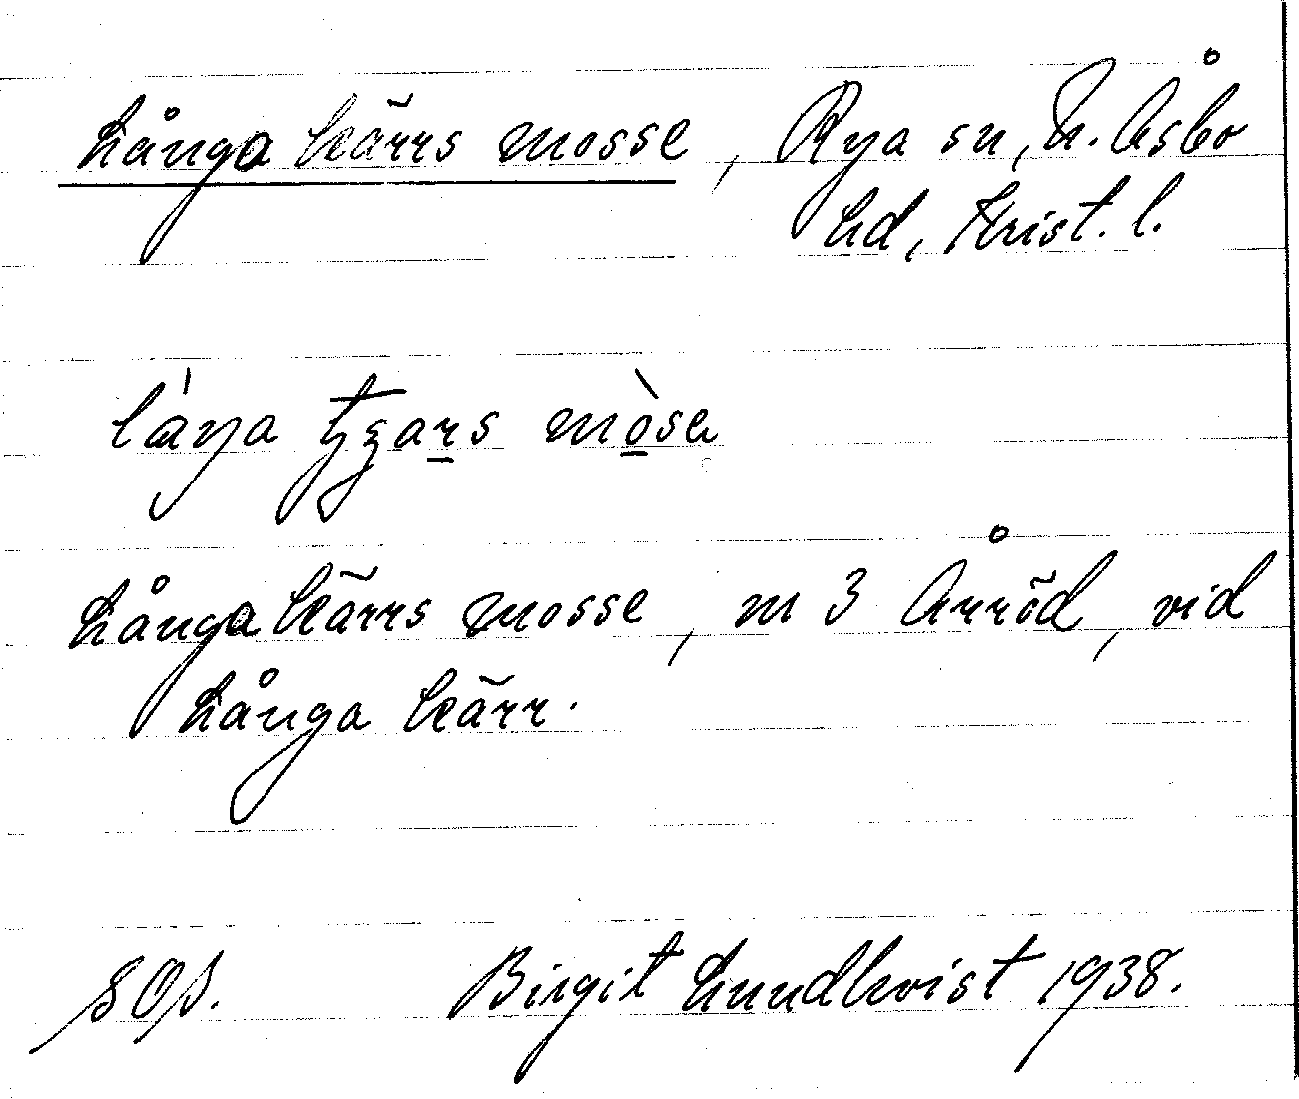 Långa kärrs mosse, Rya sn, N. Åsbo
hd, Krist. l.
låŋa tʒars mòse
Långa kärrs mosse, m 3 Arröd, vid
Långa kärr.
SOÅ. Birgit Lundkvist 1938.